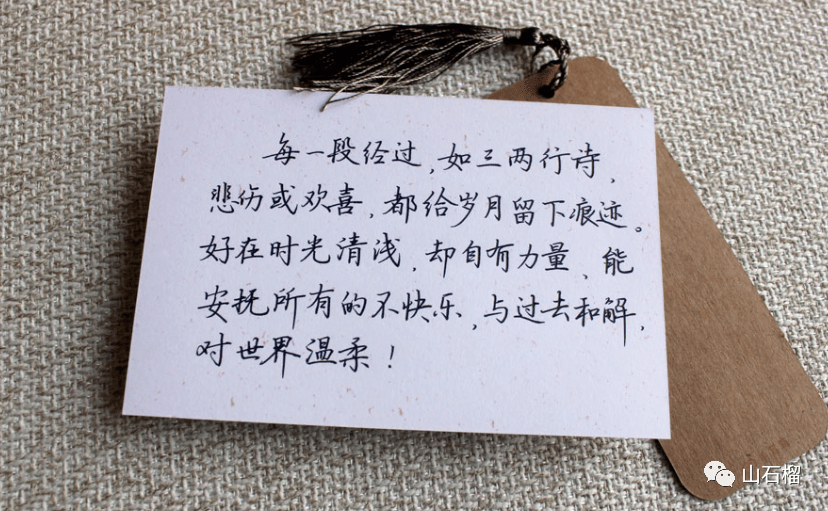 每一段经过,如三两行诗,
悲伤或欢喜,都给岁月留下痕迹。
好在时光清浅,却自有力量、能
安抚所有的不快乐,与过去和解,
对世界温柔!
山石榴